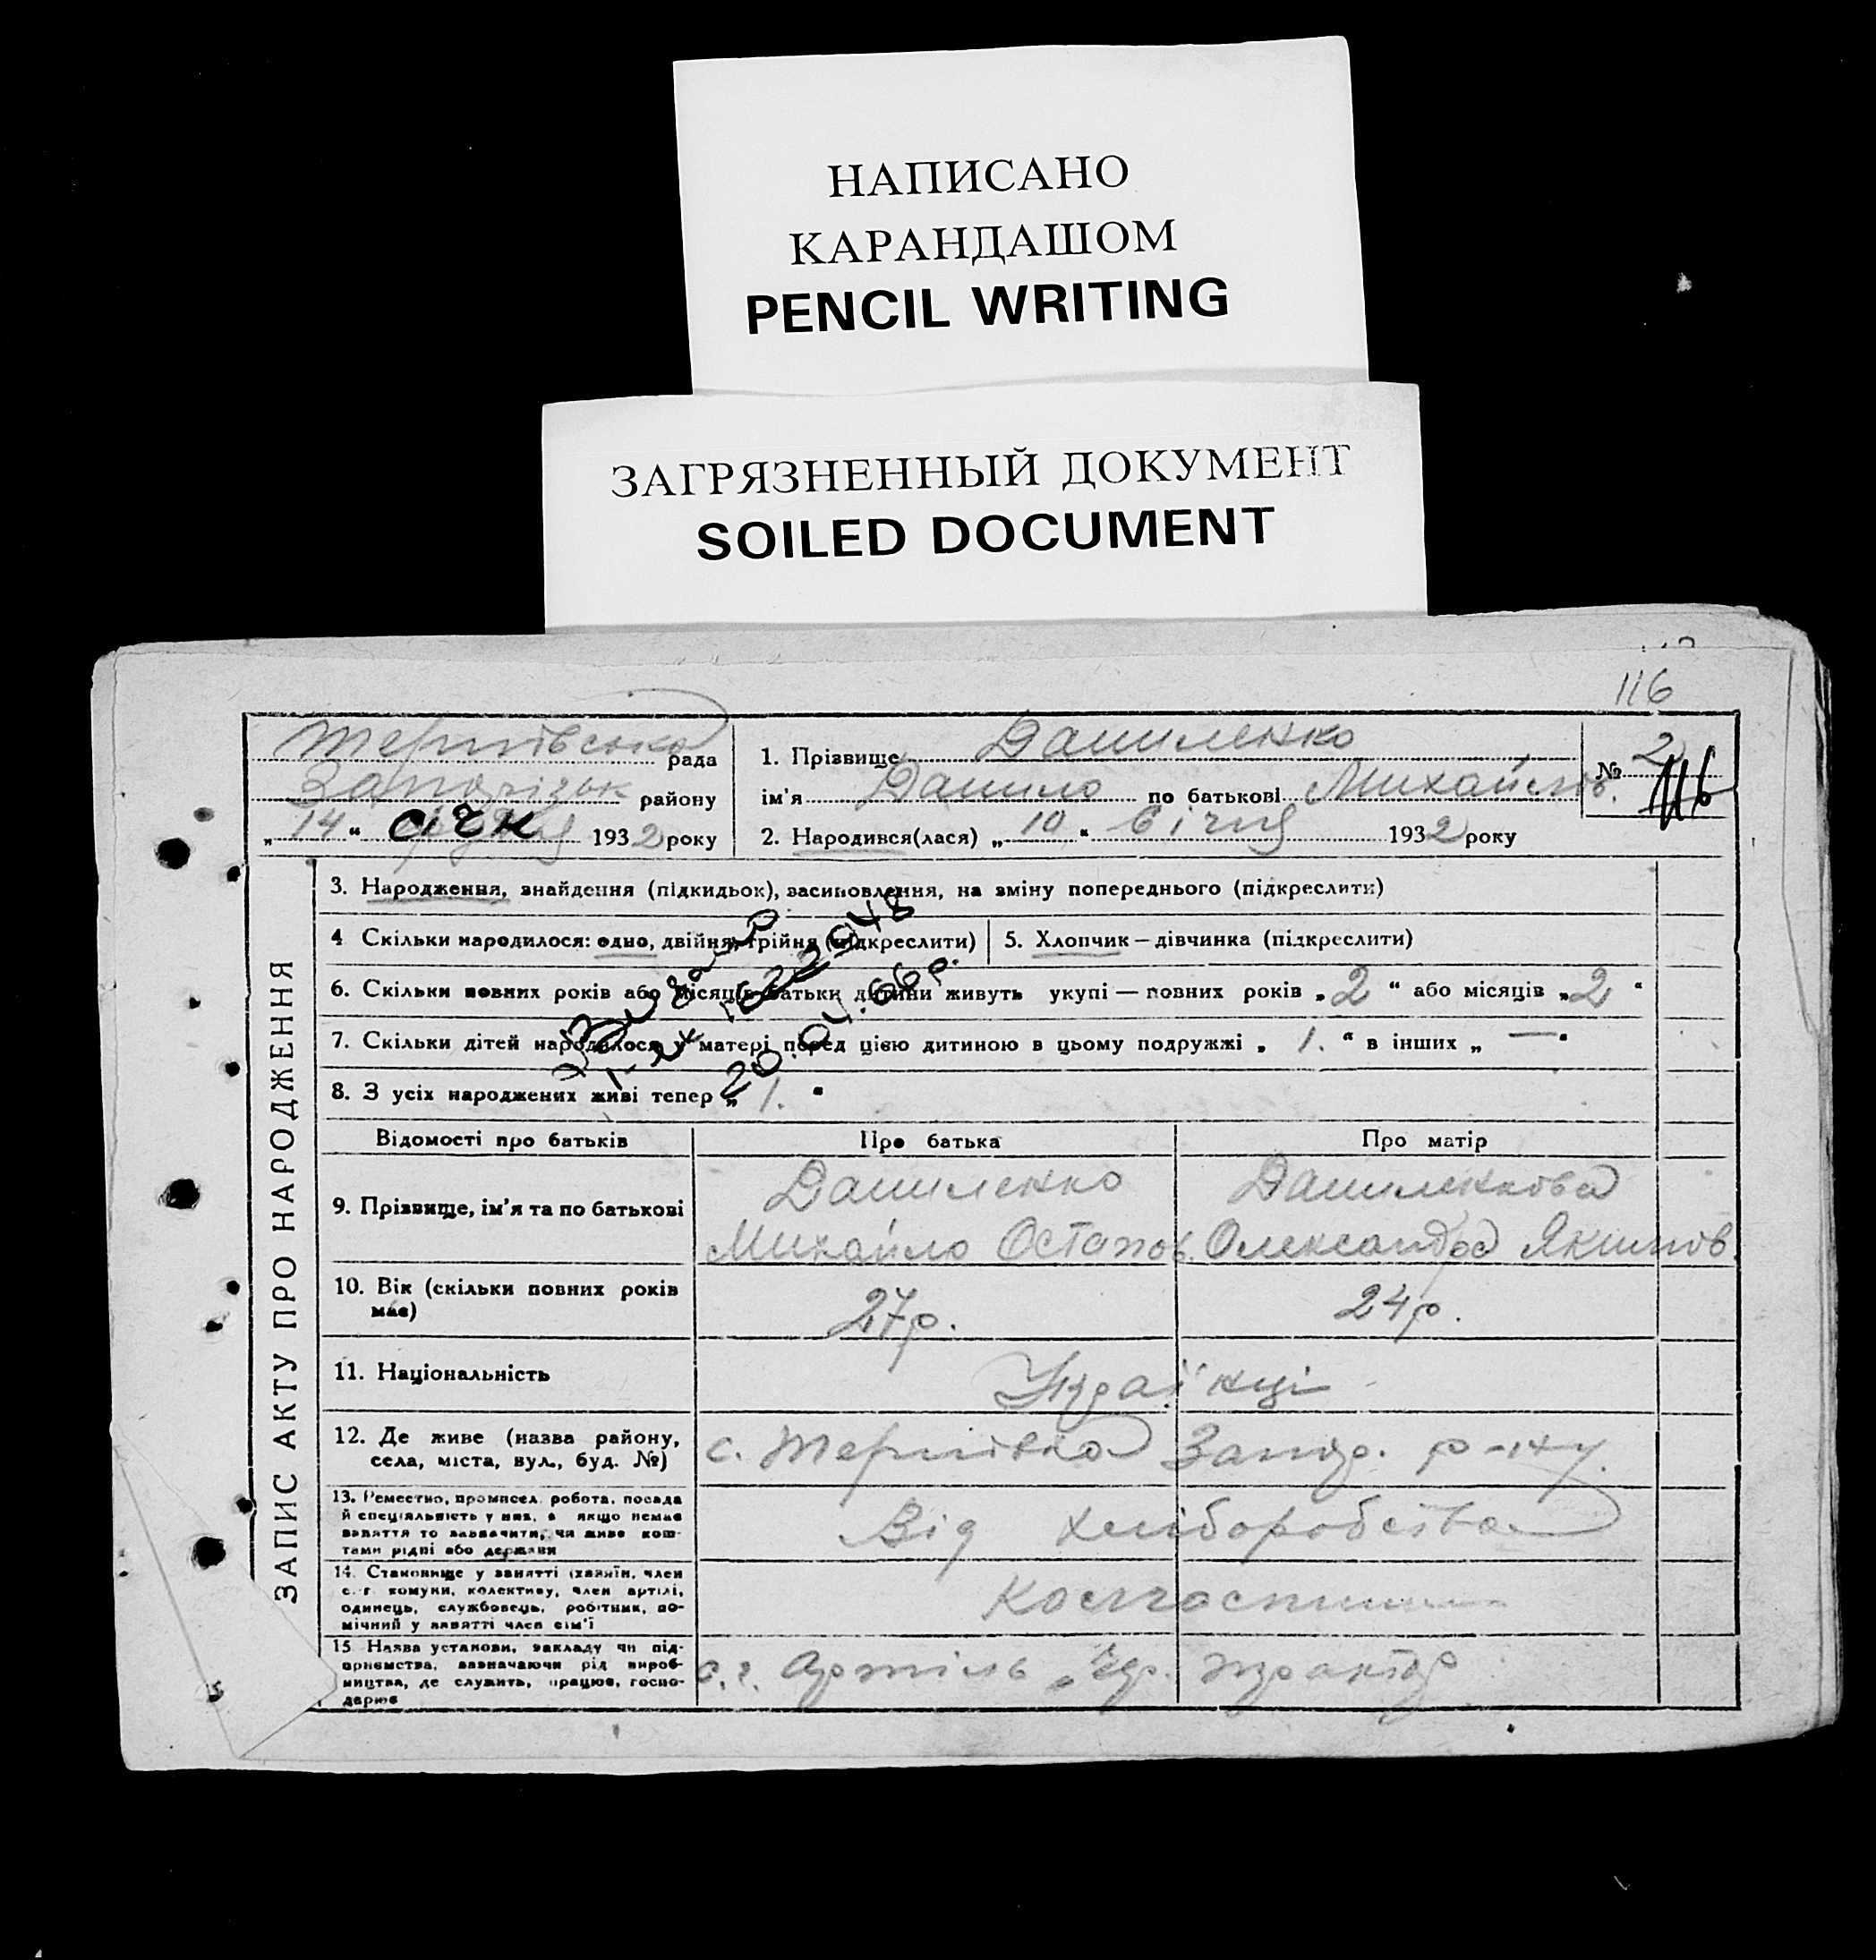 НАПИСАНО
КАРАНДАШОМ
PENCIL WRITING
ЗАГРЯЗНЕННЫЙ ДОКУМЕНТ
SOILED DOCUMENT
116
Терпівська рада
Запорізьк району
„14“ січн 1932 року
1. Прізвище Даниленко
ім'я Данило по батькові Михайлов.
2. Народився(лася) „10“ Січня 1932 року
№ 2
116
ЗАПИС АКТУ ПРО НАРОДЖЕННЯ
3. Народження, знайдення (підкидьок), засиновлення, на зміну попереднього (підкреслити)
4 Скільки народилося: одно, двійня, трійня (підкреслити)
5. Хлопчик — дівчинка (підкреслити)
6. Скільки повних років або місяців батьки дитини живуть укупі — повних років „2“ або місяців „2“
7. Скільки дітей народилося у матері перед цією дитиною в цьому подружжі „1.“ в інших „—“
8. З усіх народжених живі тепер „1.“
20.04.66 р.
Відомості про батьків
Про батька
Про матір
9. Прізвище, ім'я та по батькові
Даниленко
Михайло Остапов.
Даниленкова
Олександра Якимов.
10. Вік (скільки повних років має)
27 р.
24 р.
11. Національність
Українці
12. Де живе (назва району, села, міста, вул., буд. №)
с. Терпівка Запор. р-ну.
13. Ремество, промисел, робота, посада
й спеціяльність у них, а якщо немає
заняття то зазначити, чи живе кош-
тами рідні або держави
Від хліборобства
14. Становище у занятті (хазяїн, член
с.-г. комуни, колективу, член артілі,
одинець, службовець, робітник, по-
мічний у занятті член сім'ї
Колгоспники
15 Назва установи, закладу чи під-
приємства, зазначаючи рід вироб-
ництва, де служить, працює, госпо-
дарює
с. г. Артіль „Чер. трактор